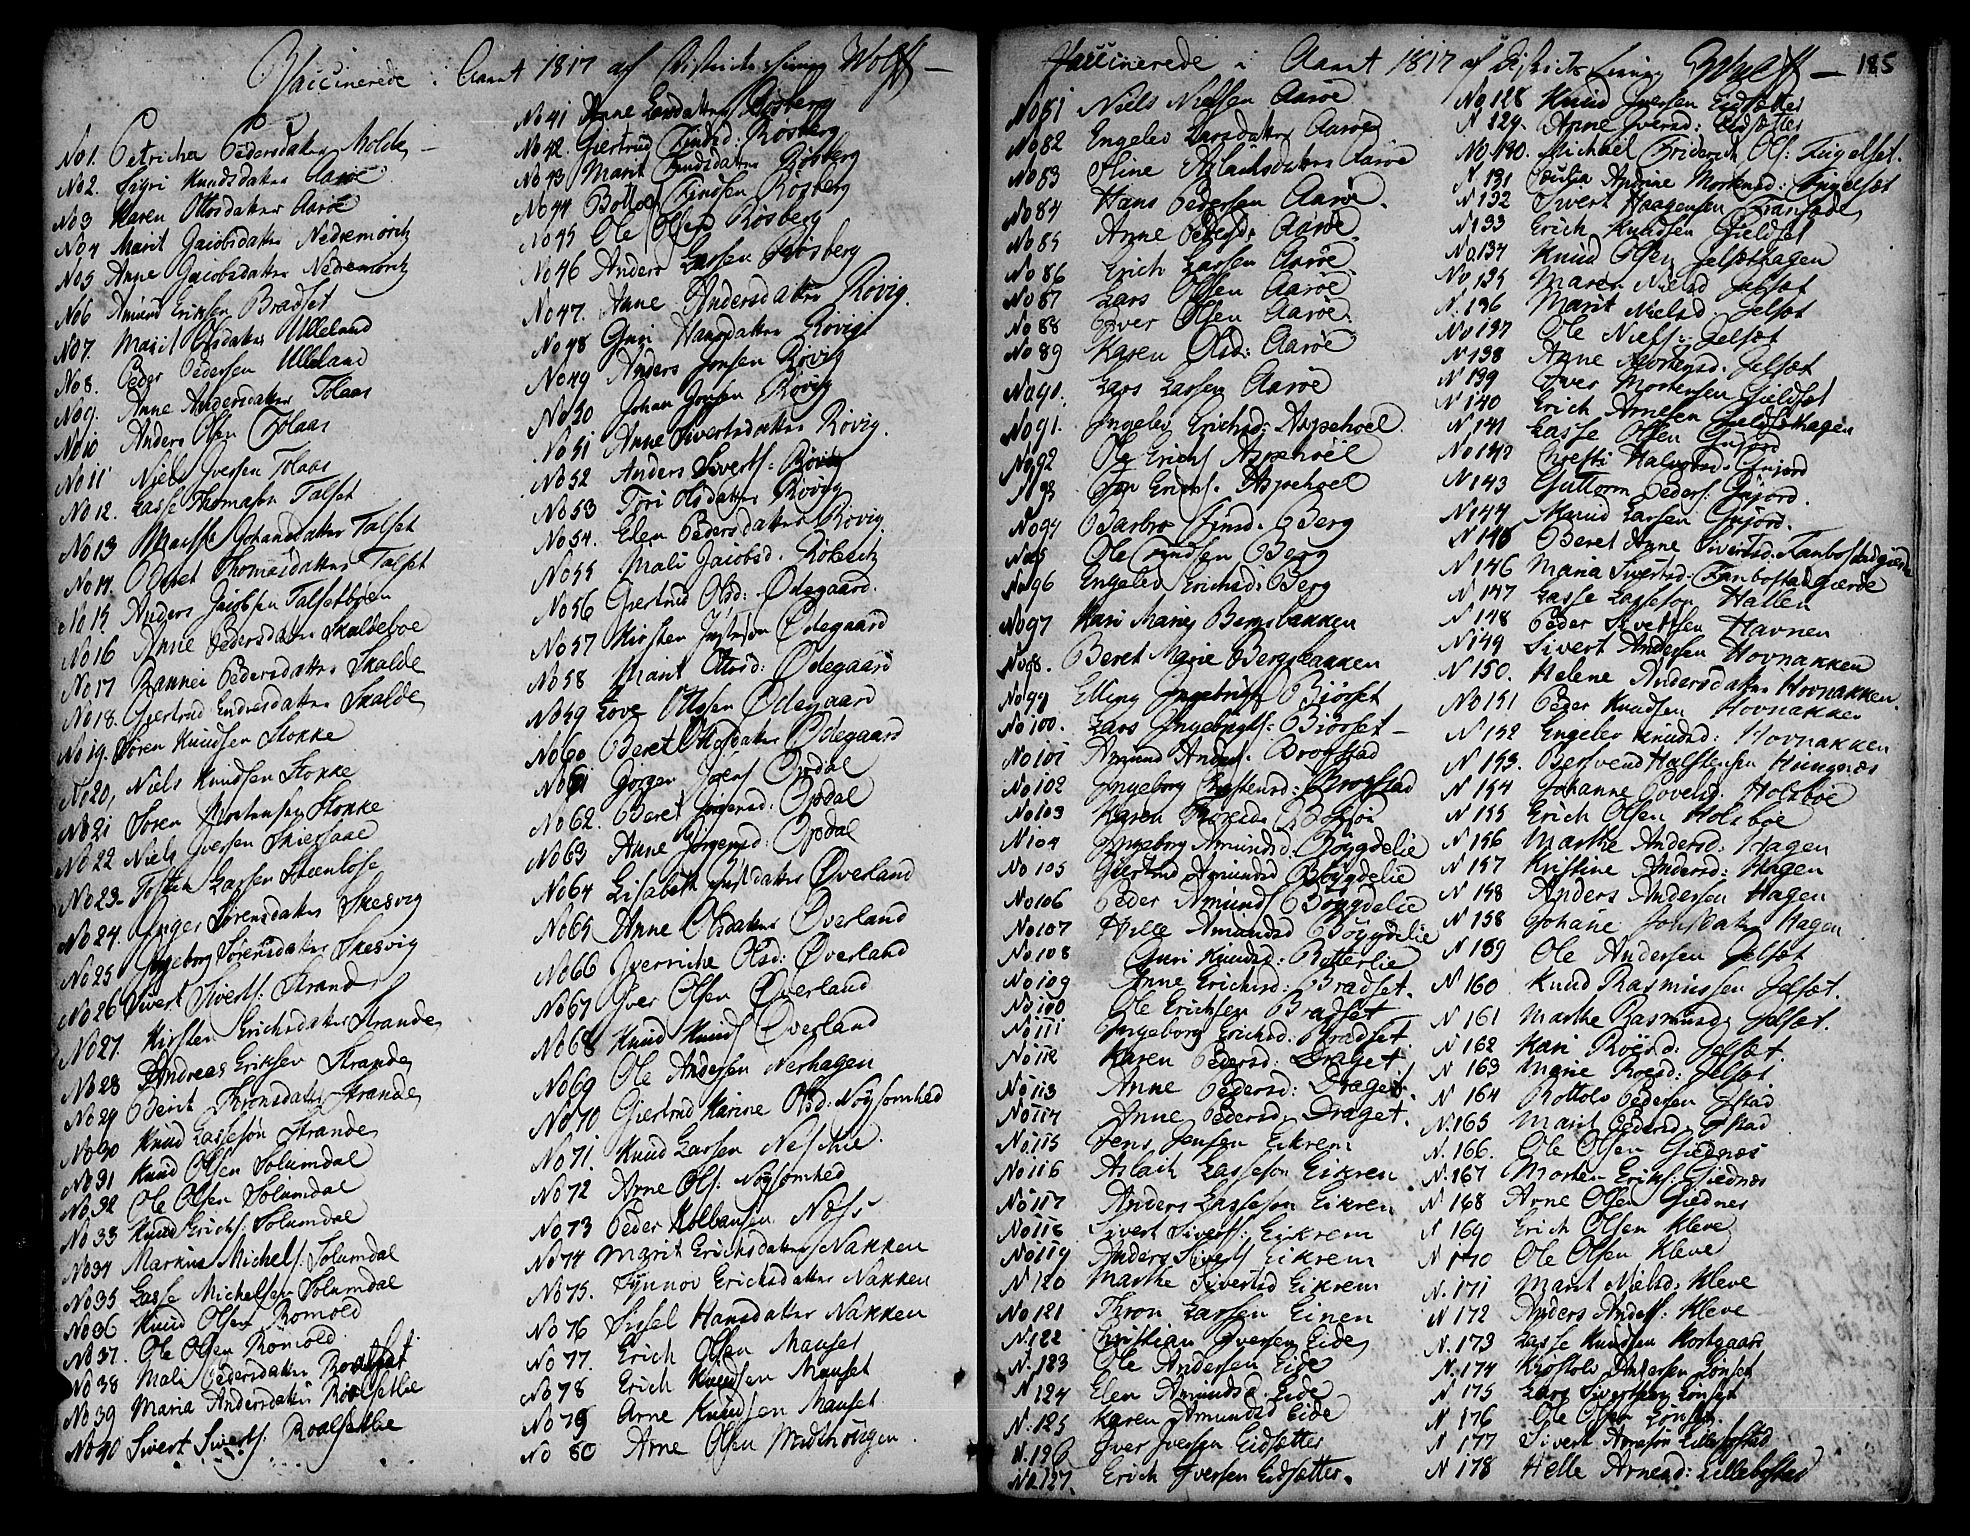 Vaccinerede i Aaret 1817 af Districts Wolff —
No 1. Petricha Pedersdatter Molde —
No 2. Sigri Knudsdatter Aaröe
No 3 Karen Ottosdatter Aaröe
No 4 Marit Jacobsdatter Nedremoritz
No 5 Anne Jacobsdatter Nedremoritz
No 6 Amund Eriksen Bradset
No 7. Marit Olsdatter Ulleland
No 8. Peder Pedersen Ulleland
No 9. Anne Andersdatter Tolaas
No 10 Anders Olsen Tolaas
No 11 Niels Iversen Tolaas
No 12. Lasse Thomasen Talset
No 13 Johansdatter Talset
No 14. Beret Thomasdatter Talset
No 15 Anders Jacobsen Talsetböen
No 16 Anne Pedersdatter Skaldeböe
No 17 Rannei Pedersdatter Skalde
No 18. Giertrud Endresdatter Skalde
No 19. Sören Knudsen Stokke
No 20, Niels Knudsen Stokke
No 21 Sören Mortensen Stokke
No 22 Niels Iversen
No 23 - Tosten Larsen Steenlöse
No 24. Inger Sörensdatter Skesvig
No 25 Ingeborg Sörensdatter Skesvig
No 26 Sivert Siverts: Strande
No 27. Kirsten Erichsdatter Strande
No 28 Andreas Eriksen Strande
No 29 Berit Thronsdatter Strande
No 30 Knud Lassesön Strande
No 31 Knud Olsen Solumdal
No 32 Ole Olsen Solumdal
No 33 Knud Erichs: Solumdal
No 34 Markus Michels: Solumdal
No 35 Lasse Michelsen Solumdal
No 36 Knud Olsen Romold
No 37. Ole Olsen Romold
No 38 Mali Pedersdatter Roalset
No 39 Maria Andersdatter Roalsetlie
No 40 Sivert Siverts: Roalsetlie
No 41 Anne Larsdatter Rösberg
No 42. Giertrud Findsd: Rösberg
No 43 Marit Findsdatter Rösberg
No 44 Bottolf Findsen Rösberg
No 45 Ole Olsen Rösberg
No 46 Anders Larsen Rösberg
No 47. Anne Andersdatter Rövig.
No 48 Guri Hansdatter Rövig
No 49 Anders Jonsen Rövig
No 50 Johan Jonsen Rövig
No 51 Anne Sivertsdatter Rövig.
No 52 Anders Siverts: Rövig
No 53 Tori Olsdatter Rövig
No 54. Elen Pedersdatter Rövig.
No 55 Mali Jacobsd.
No 56 Giertrud Olsd: Ødegaard.
No 57 Kirsten Ødegaard
No 58 Marit Ottosd: Ødegaard
No 59 Love Ottosen Ødegaard
No 60 Beret Ottosdatter Ødegaard
No 61 Jörgen Opdal
No 62. Beret Jörgensd: Opdal
No 63 Anne Jörgensd: Opdal
No 64 Lisabeth Øverland
No 65 Anne Olsdatter Øverland
No 66 Iverriche Olsd: Øverland
No 67 Iver Olsen Øverland
No 68 Knud Knuds Øverland
No 69 Ole Andersen Nerhagen
No 70 Giertrud Karine Olsd: Nöysomhed
No 71. Knud Larsen
No 72 Arne Ols: Nöysomhed
No 73 Peder Kolbansen
No 74 Marit Erichsdatter Nakken
No 75. Synnöv Erichsdatter Nakken
No 76 Sissel Hansdatter Nakken
No 77. Erich Olsen Mauset
No 78 Erich Knudsen Mauset
No 79 Arne Knudsen Mauset
No 80 Arne Olsen Midthougen.
Vaccinerede i Aaret 1817 af Districts Wolff — 185
No 81 Niels Nielsen Aaröe
No 82 Engelev Larsdatter Aaröe
No 83 Stine Aslachsdatter Aaröe
No 84 Hans Pedersen Aaröe.
No 85 Anne Pedersd: Aaröe.
No 86 Erich Larsen Aaröe
No 87 Lars Olsen Aaröe
No 88 Iver Olsen Aaröe.
No 89 Karen Olsd: Aaröe
No 90. Lars Larsen Aaröe
No 91. Ingelev Erichsd: Aspehoel.
No 92 Ole Erichs Aspehöel
No 93 Erichs: Aspehoel
No 94 Barbro Finsd. Berg
No 95 Ole Findsen Berg
No 96 Engelev Erichsd: Berg
No 97 Kari Marie Bergsbakken
No 98. Beret Marie Bergsbakken
No 99 Elling Ingebrigts Biörset
No 100. Lars Ingebrigts: Biörset —
No 101 Amund Anders: Brogstad
No 102 Ingeborg Christensd: Brogstad
No 103 Karen
No 104 Ingeborg Amundsd. Böygdelie
No 105 Giertrud Amundsd Böygdelie
No 106 Peder Amunds Böygdelie
No 107 Hille Amundsd Böygdelie
No 108 Guri Knudsd: Botterlie
No 109 Anne Erichsd: Bradset.
No 100 Ole Erichsen Bradset
No 111 Ingeborg Erichsd. Bradset
No 112 Karen Pedersd: Draget
No 113 Anne Pedersd: Draget
No 114 Anne Pedersd. Draget.
No 115 Jens Jensen Eikrem
No 116 Aslach Lassesön Eikrem
No 117 Anders Lassesön Eikrem
No 118 Sivert Siverts: Eikrem
No 119 Anders Siverts Eikrem
N 120 Marthe Sivertsd Eikrem
No 121 Thron Larsen Einen
N. 122 Christian Iversen Eide
N. 123 Ole Andersen Eide
N 124 Elen Amundsd Eide
N. 125 Karen Amundsd Eide
N. 126 Iver Iversen Eidsetter
No. 127. Erich Iversen Eidsetter.
No. 128 Knud Iversen Eidsetter
N. 129. Anne Iversd: Eidsetter
No. 130. Michael Friderich Ols: Fugelset.
N 131 Cecilia Andrine Mortensd: Fugelset
N 132 Sivert Haagensen
N 133 Erich Knudsen Gieldset
No. 134 Knud Olsen Jelsethagen
No 135 Maren Nielsd Jelset
N. 136 Marit Nielsd. Jelset
No 137 Ole Niels: Jelset
N 138 Anne Mortensd. Jelset
N 139 Iver Mortensen Gieldset
N 140 Erich Arnesen Gieldsethagen
N 141 Lasse Olsen Gujord
No 142 Halvorsd. Gujord
N 143 Guttorm Peders: Gujord.
N 144 Knud Larsen Gujord.
N 145 Beret Anne Sivertsd:
N 146 Maria Sivertsd:
N 147 Lasse Lassesön Hallen
N 148 Peder Sivertsen Havnen
N 149 Sivert Andersen Hovnakken
N 150. Helene Andersdatter Hovnakken.
No 151 Peder Knudsen Hovnakken
N 152 Engelev Knudsd: Hovnakken
N 153. Bersvend Halstensen Hungnæs
N 154 Johanne Holsböe
N 155 Erich Olsen Holsböe
N 156 Marthe Andersd: Hagen
N 157 Kristine Andersd: Hagen
N 158 Anders Andersen Hagen
N 158 Johane Jonsdatter Hagen
N 159 Ole Andersen Jelset
N 160 Knud Rasmussen Jelset.
N 161 Marthe Rasmusd. Jelset.
N 162 Kari Roesd: Jelset.
N 163 Marie Roesd: Jelset
N 164 Bottolv Pedersen
N. 165 Marit Pedersd
N. 166. Ole Olsen Giednæs
N. 167 Morten Eriks: Giednæs
N 168 Arne Olsen Giednes
N 169 Erich Olsen Kleve
N 170 Ole Olsen Kleve
N. 171 Marit Nielsd: Kleve
N 172 Anders Anders: Kleve
N. 173 Lasse Knudsen Kortgaard
N. 174 Andersen Lönset
N 175 Lars Sivertsen Lönset
N 176 Ole Olsen Lönset.
N 177 Sivert Arnesön Lillebostad
N 178 Helle Arnesd: Lillebostad